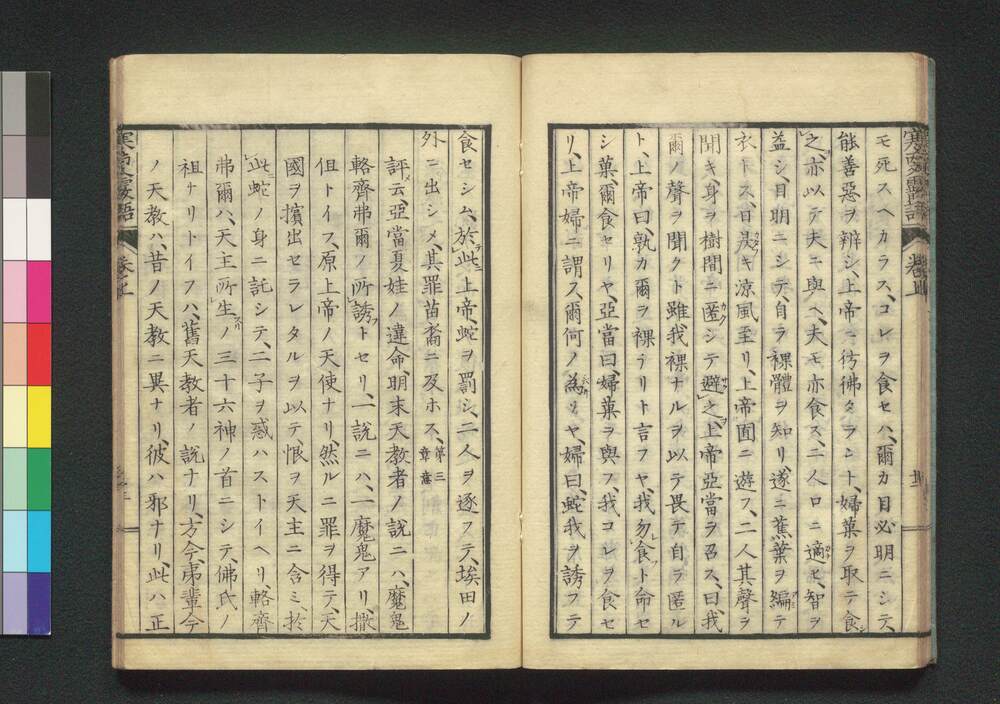 モ死スヘカラス、コレヲ食セハ、爾カ目必明ニシテ、
能善惡ヲ辨シ、上帝ニ彷彿タラント、婦菓ヲ取テ食シ
之、亦以テ夫ニ與ヘ、夫モ亦食ス、二人口ニ適セ、智ヲ
益シ、目明ニシテ、自ラ裸體ヲ知リ、遂ニ蕉葉ヲ編テ
衣トス、日昃キ涼風至リ、上帝囿ニ遊フ、二人其聲ヲ
聞キ、身ヲ樹間ニ匿シテ避之、上帝亞當ヲ召ス、曰我
爾ノ聲ヲ聞クト雖、我裸ナルヲ以テ畏テ自ラ匿ル
ト、上帝曰、孰カ爾ヲ裸ナリト言フヤ、我勿食ト命セ
シ菓、爾食セリヤ、亞當曰、婦菓ヲ與フ、我コレヲ食セ
リ、上帝婦ニ謂ス、爾何ノ為ソヤ、婦曰、蛇我ヲ誘フテ
食セシム、於此上帝、蛇ヲ罰シ、二人ヲ逐フテ、埃田ノ
外ニ出シメ、其罪苗裔ニ及ホス、第三章意
評云、亞當夏娃ノ違命、明末天教者ノ說ニハ、魔鬼
輅齊弗爾ノ所誘トセリ、一說ニハ、一魔鬼アリ、撒
但トイフ、原上帝ノ天使ナリ、然ルニ罪ヲ得テ、天
國ヲ擯出セラレタルヲ以テ、恨ヲ天主ニ含ミ、於
此蛇ノ身ニ託シテ、二子ヲ惑ハストイヘリ、輅齊
弗爾ハ、天主所生ノ三十六神ノ首ニシテ、佛氏ノ
祖ナリトイフハ、舊天教者ノ說ナリ、方今弗輩今
ノ天教ハ、昔ノ天教ニ異ナリ、彼ハ邪ナリ、此ハ正